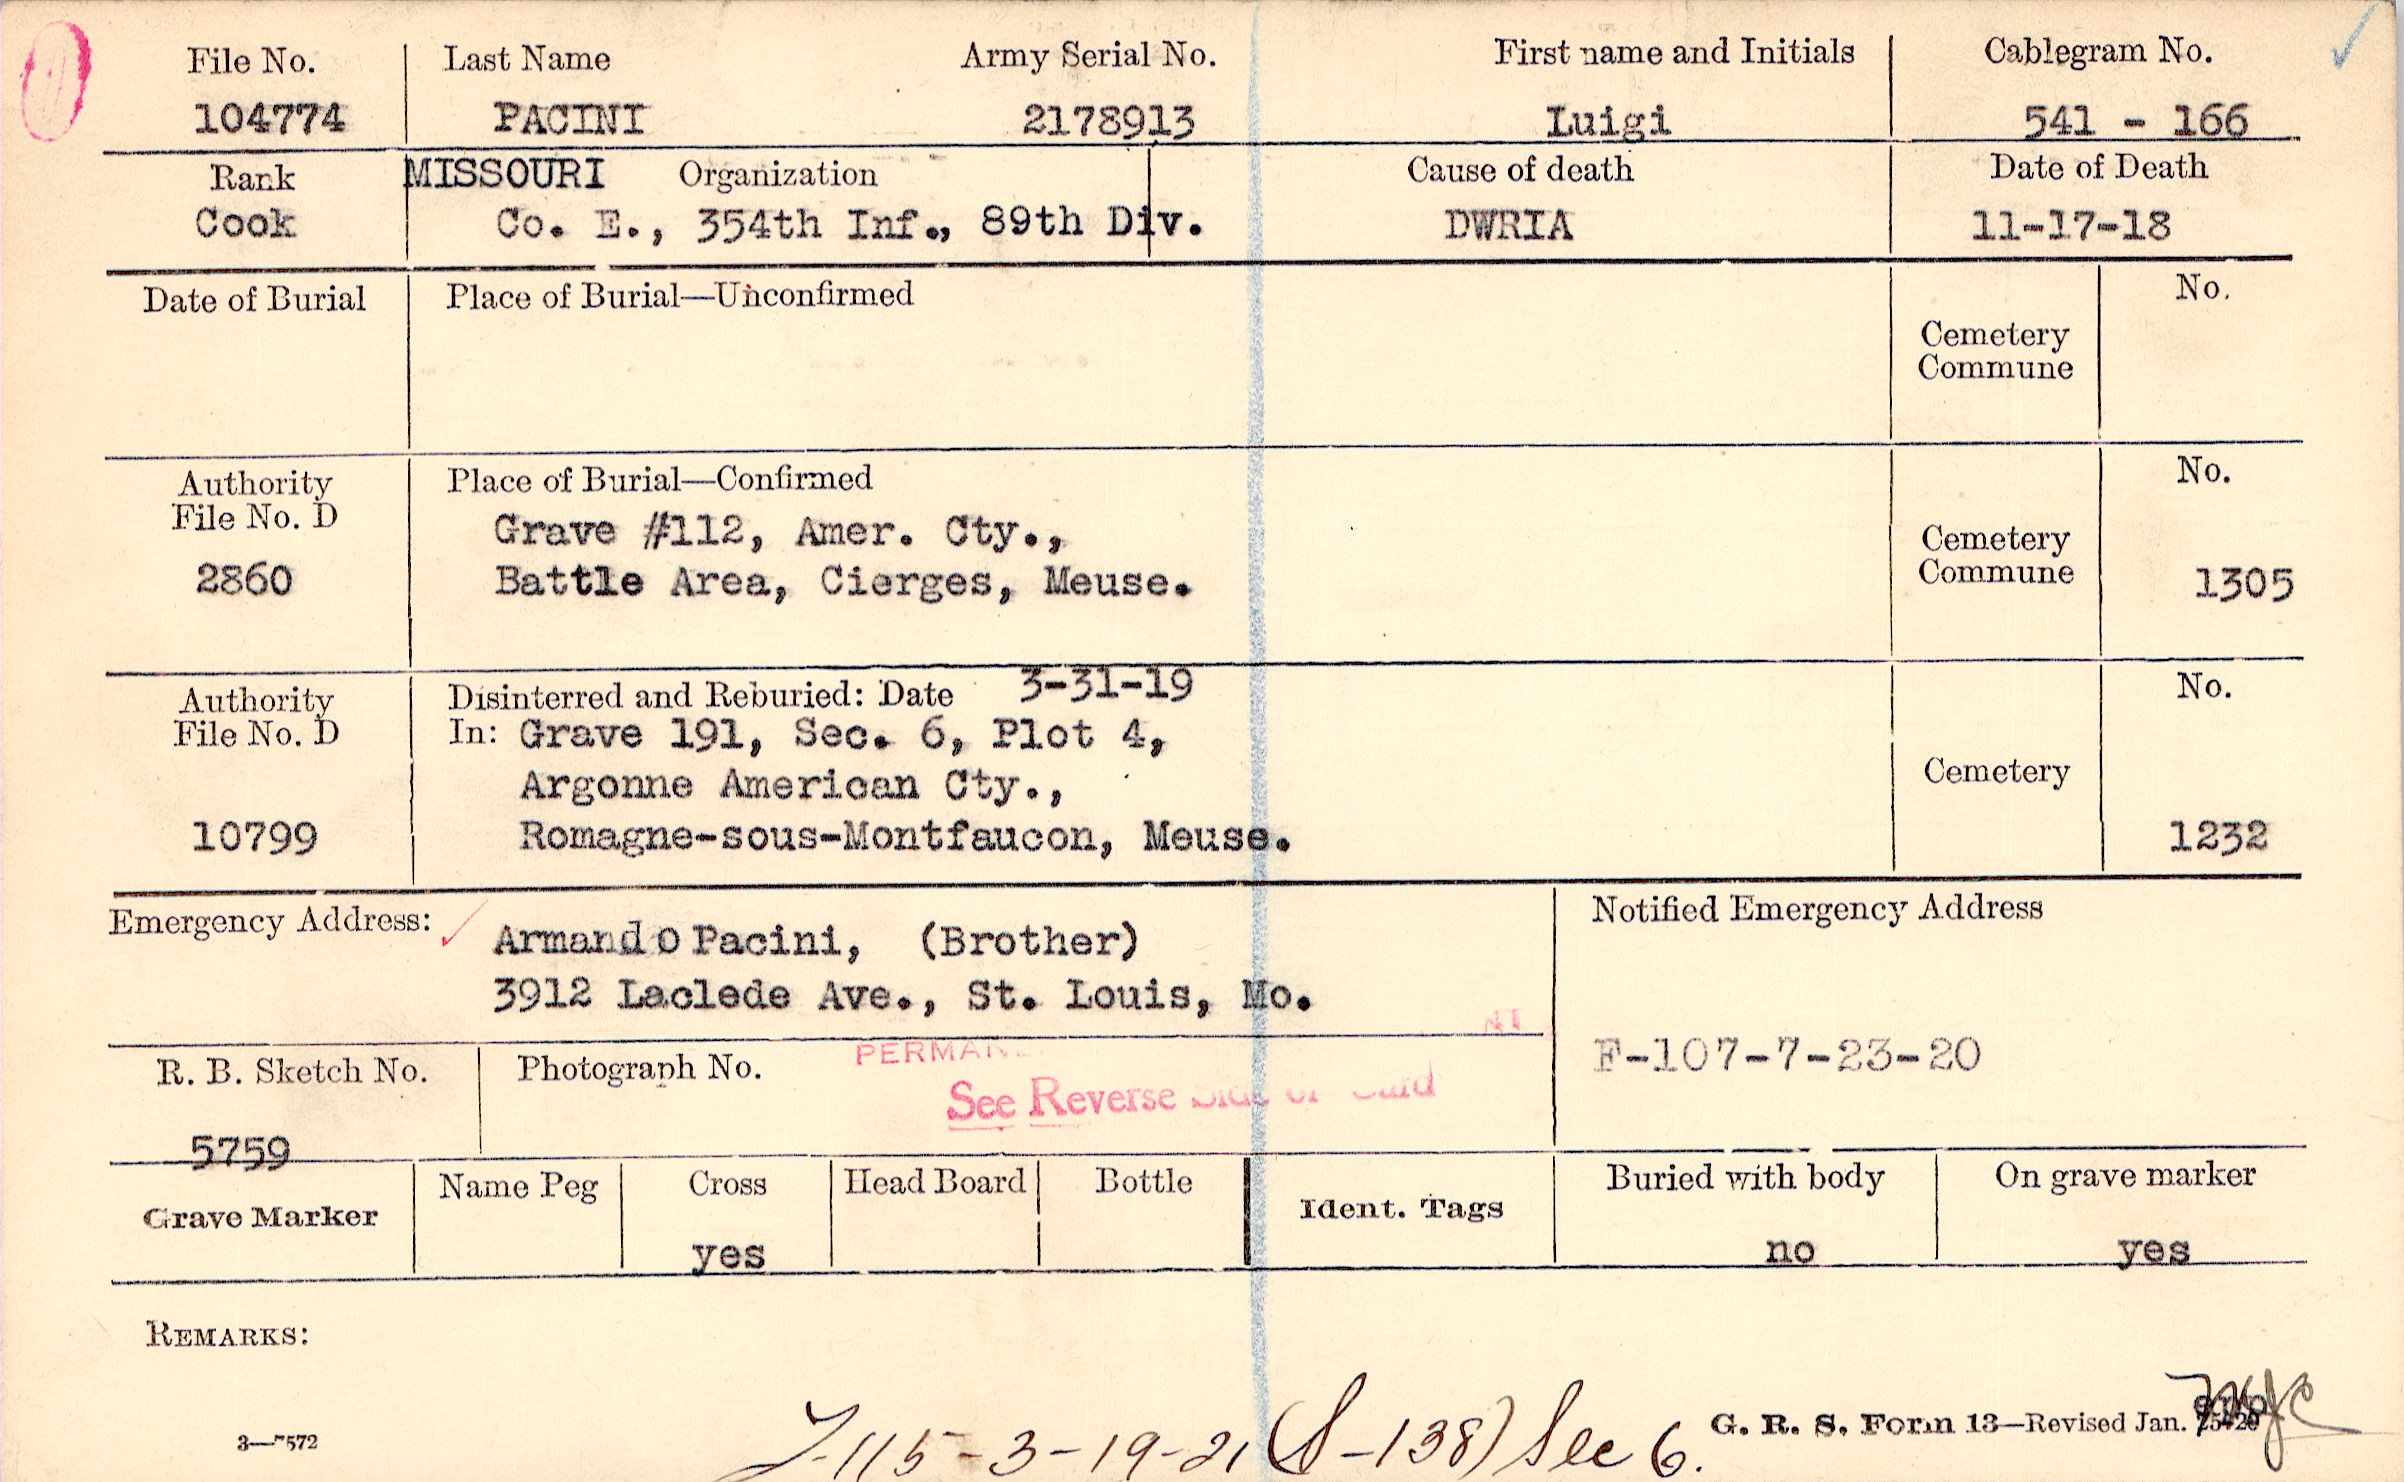 File No. Last Name Army Serial No. First name and Initials Cablegram No.
104774 PACINI 2178913 Luigi 541 - 166
Rank MISSOURI Organization Cause of death Date of Death
Cook Co. E., 354th Inf., 89th Div. DWRIA 11-17-18
Date of Burial Place of Burial—Unconfirmed No.
Cemetery
Commune
Authority Place of Burial—Confirmed No.
File No. D Grave #112, Amer. Cty., Cemetery
2860 Battle Area, Cierges, Meuse. Commune 1305
Authority Disinterred and Reburied: Date 3-31-19 No.
File No. D In: Grave 191, Sec. 6, Plot 4,
Argonne American Cty., Cemetery
10799 Romagne-sous-Montfaucon, Meuse. 1232
Emergency Address: Armando Pacini, (Brother) Notified Emergency Address
3912 Laclede Ave., St. Louis, Mo.
F-107-7-23-20
R. B. Sketch No. Photograph No.
See Reverse Side of Card
5759
Grave Marker Name Peg Cross Head Board Bottle Ident. Tags Buried with body On grave marker
yes no yes
REMARKS:
3—7572 G. R. S. Form 13—Revised Jan.
115-3-19-21 (S-138) Sec 6.